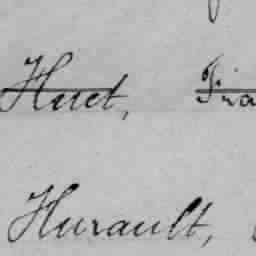 Huet, Fra
Hurault,